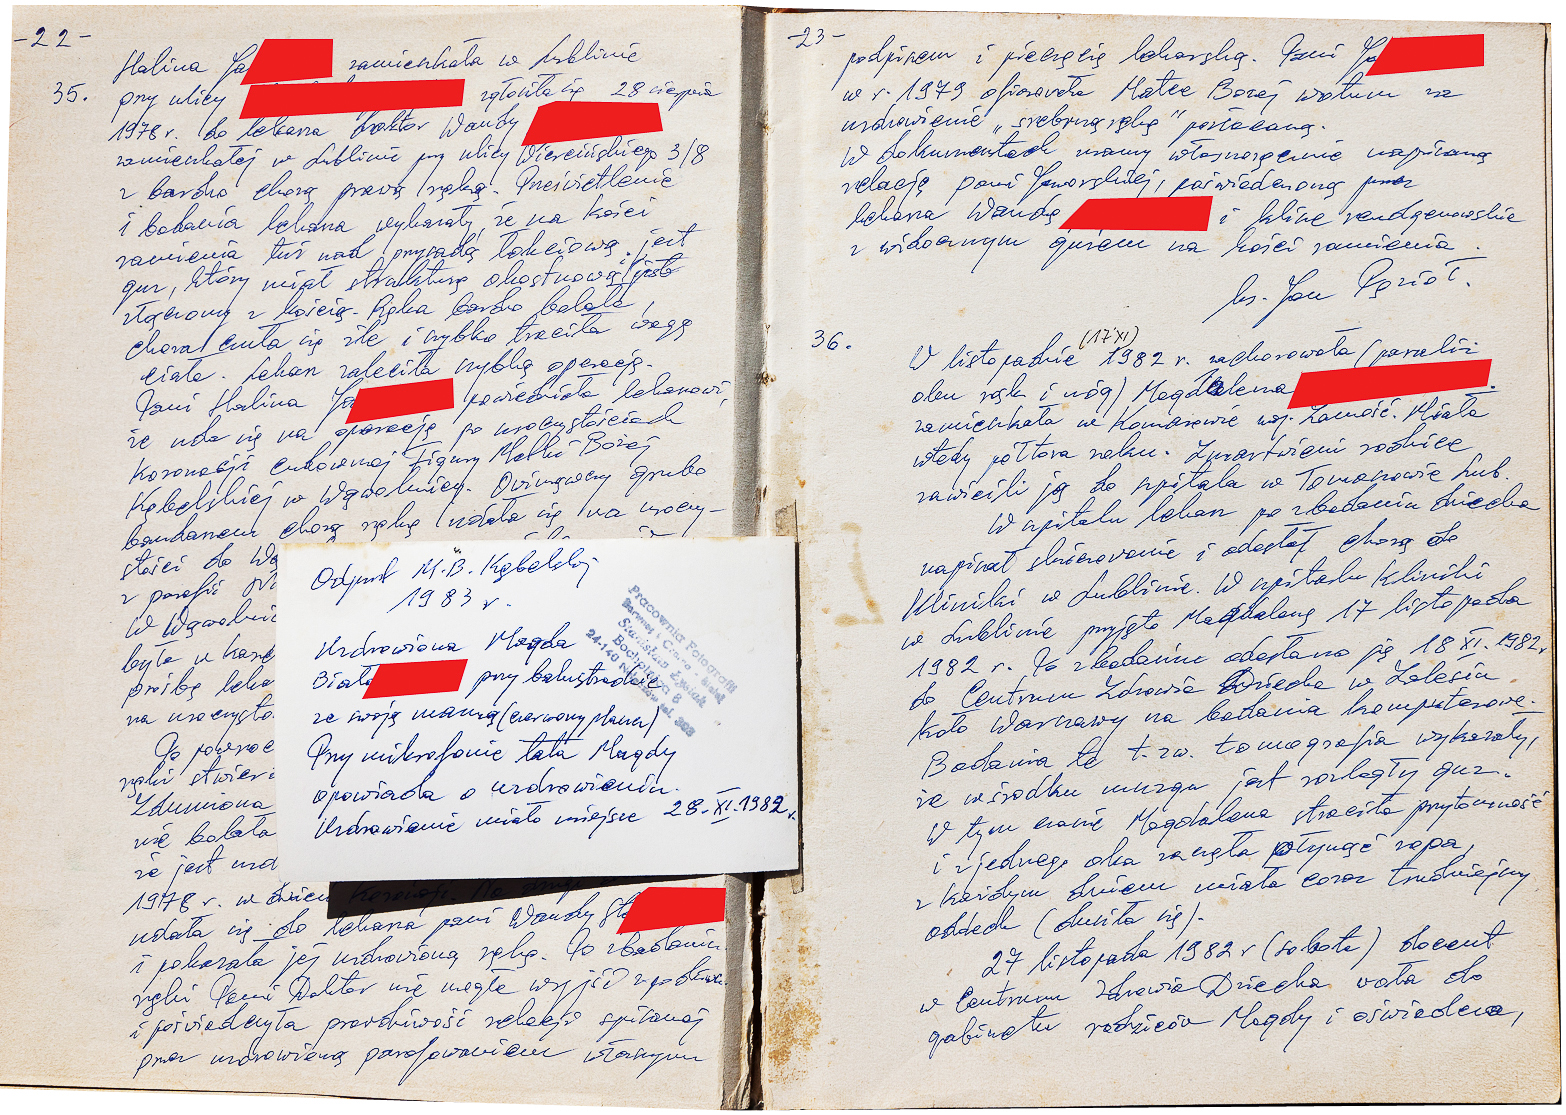 -22-
Halina Ja zamieszkała w Lublinie
35. przy ulicy zgłosiła się 28 sierpnia
1978 r. do lekarza doktor Wandy
zamieszkałej w Lublinie przy ulicy Wiercińskiego 3/8
z bardzo chorą prawą ręką. Prześwietlenie
i badania lekarza wykazały, że na kości
ramienia tuż nad przynasadą łokciową, jest
guz, który miał strukturę okostnową i jest
złączony z kością. Ręka bardzo bolała,
chora czuła się źle i szybko traciła wagę
ciała. Lekarz zaleciła szybką operację.
Pani Halina Ja powiedziała lekarzowi,
że uda się na operację po uroczystościach
Koronacji cudownej Figury Matki Bożej
Kębelskiej w Wąwolnicy. Owinąwszy grubo
bandażem chorą rękę udała się na uroczy-
stości do Wą
z parafii
W Wąwolni
była w
prośbę leka
na uroczysto
Po powroc
ręki stwier
Zdumiona
nie bolała
że jest uzd
1978 r. w dzień Koronacji.
udała się do lekarza pani Wandy St
i pokazała jej uzdrowioną rękę. Po zbadaniu
ręki Pani Doktor nie mogła wyjść z podziwu
i poświadczyła prawdziwość relacji spisanej
przez uzdrowioną parafowaniem własnym
Odpust M.B. Kębelskiej
1983 r.
Uzdrowiona Magda
Biała przy balustradzie
ze swoją mamą (czerwony płaszcz)
Przy mikrofonie tata Magdy
opowiada o uzdrowieniu.
Uzdrowienie miało miejsce 28. XI. 1982 r.
Pracownia Fotografii
Barwnej i Czarno-białej
Bochotnica 8
24-140 tel. 388
-23-
podpisem i pieczęcią lekarską. Pani Ja
w r. 1979 ofiarowała Matce Bożej wotum za
uzdrowienie „srebrną rękę" pozłacaną.
W dokumentach mamy własnoręcznie napisaną
relację pani Jaworskiej, poświadczoną przez
lekarza Wandę i kliszę rendgenowskie
z widocznym guzem na kości ramienia.
ks. Jan Pęzioł.
(17 XI)
36. W listopadzie 1982 r. zachorowała (paraliż
obu rąk i nóg) Magdalena
zamieszkała w Komarowie woj. Zamość. Miała
wtedy półtora roku. Zmartwieni rodzice
zawieźli ją do szpitala w Tomaszowie Lub.
W szpitalu lekarz po zbadaniu dziecka
napisał skierowanie i odesłał chorą do
Kliniki w Lublinie. W szpitalu Kliniki
w Lublinie przyjęto Magdalenę 17 listopada
1982 r. Po zbadaniu odesłano ją 18 XI. 1982 r.
do Centrum Zdrowia Dziecka w Zalesiu
koło Warszawy na badania komputerowe.
Badania te t. zw. tomografia wykazały,
że w środku mózgu jest rozległy guz.
W tym czasie Magdalena straciła przytomność
i z jednego oka zaczęła płynąć ropa,
z każdym dniem miała coraz trudniejszy
oddech (dusiła się).
27 listopada 1982 r (sobota) docent
w Centrum Zdrowia Dziecka woła do
gabinetu rodziców Magdy i oświadcza,